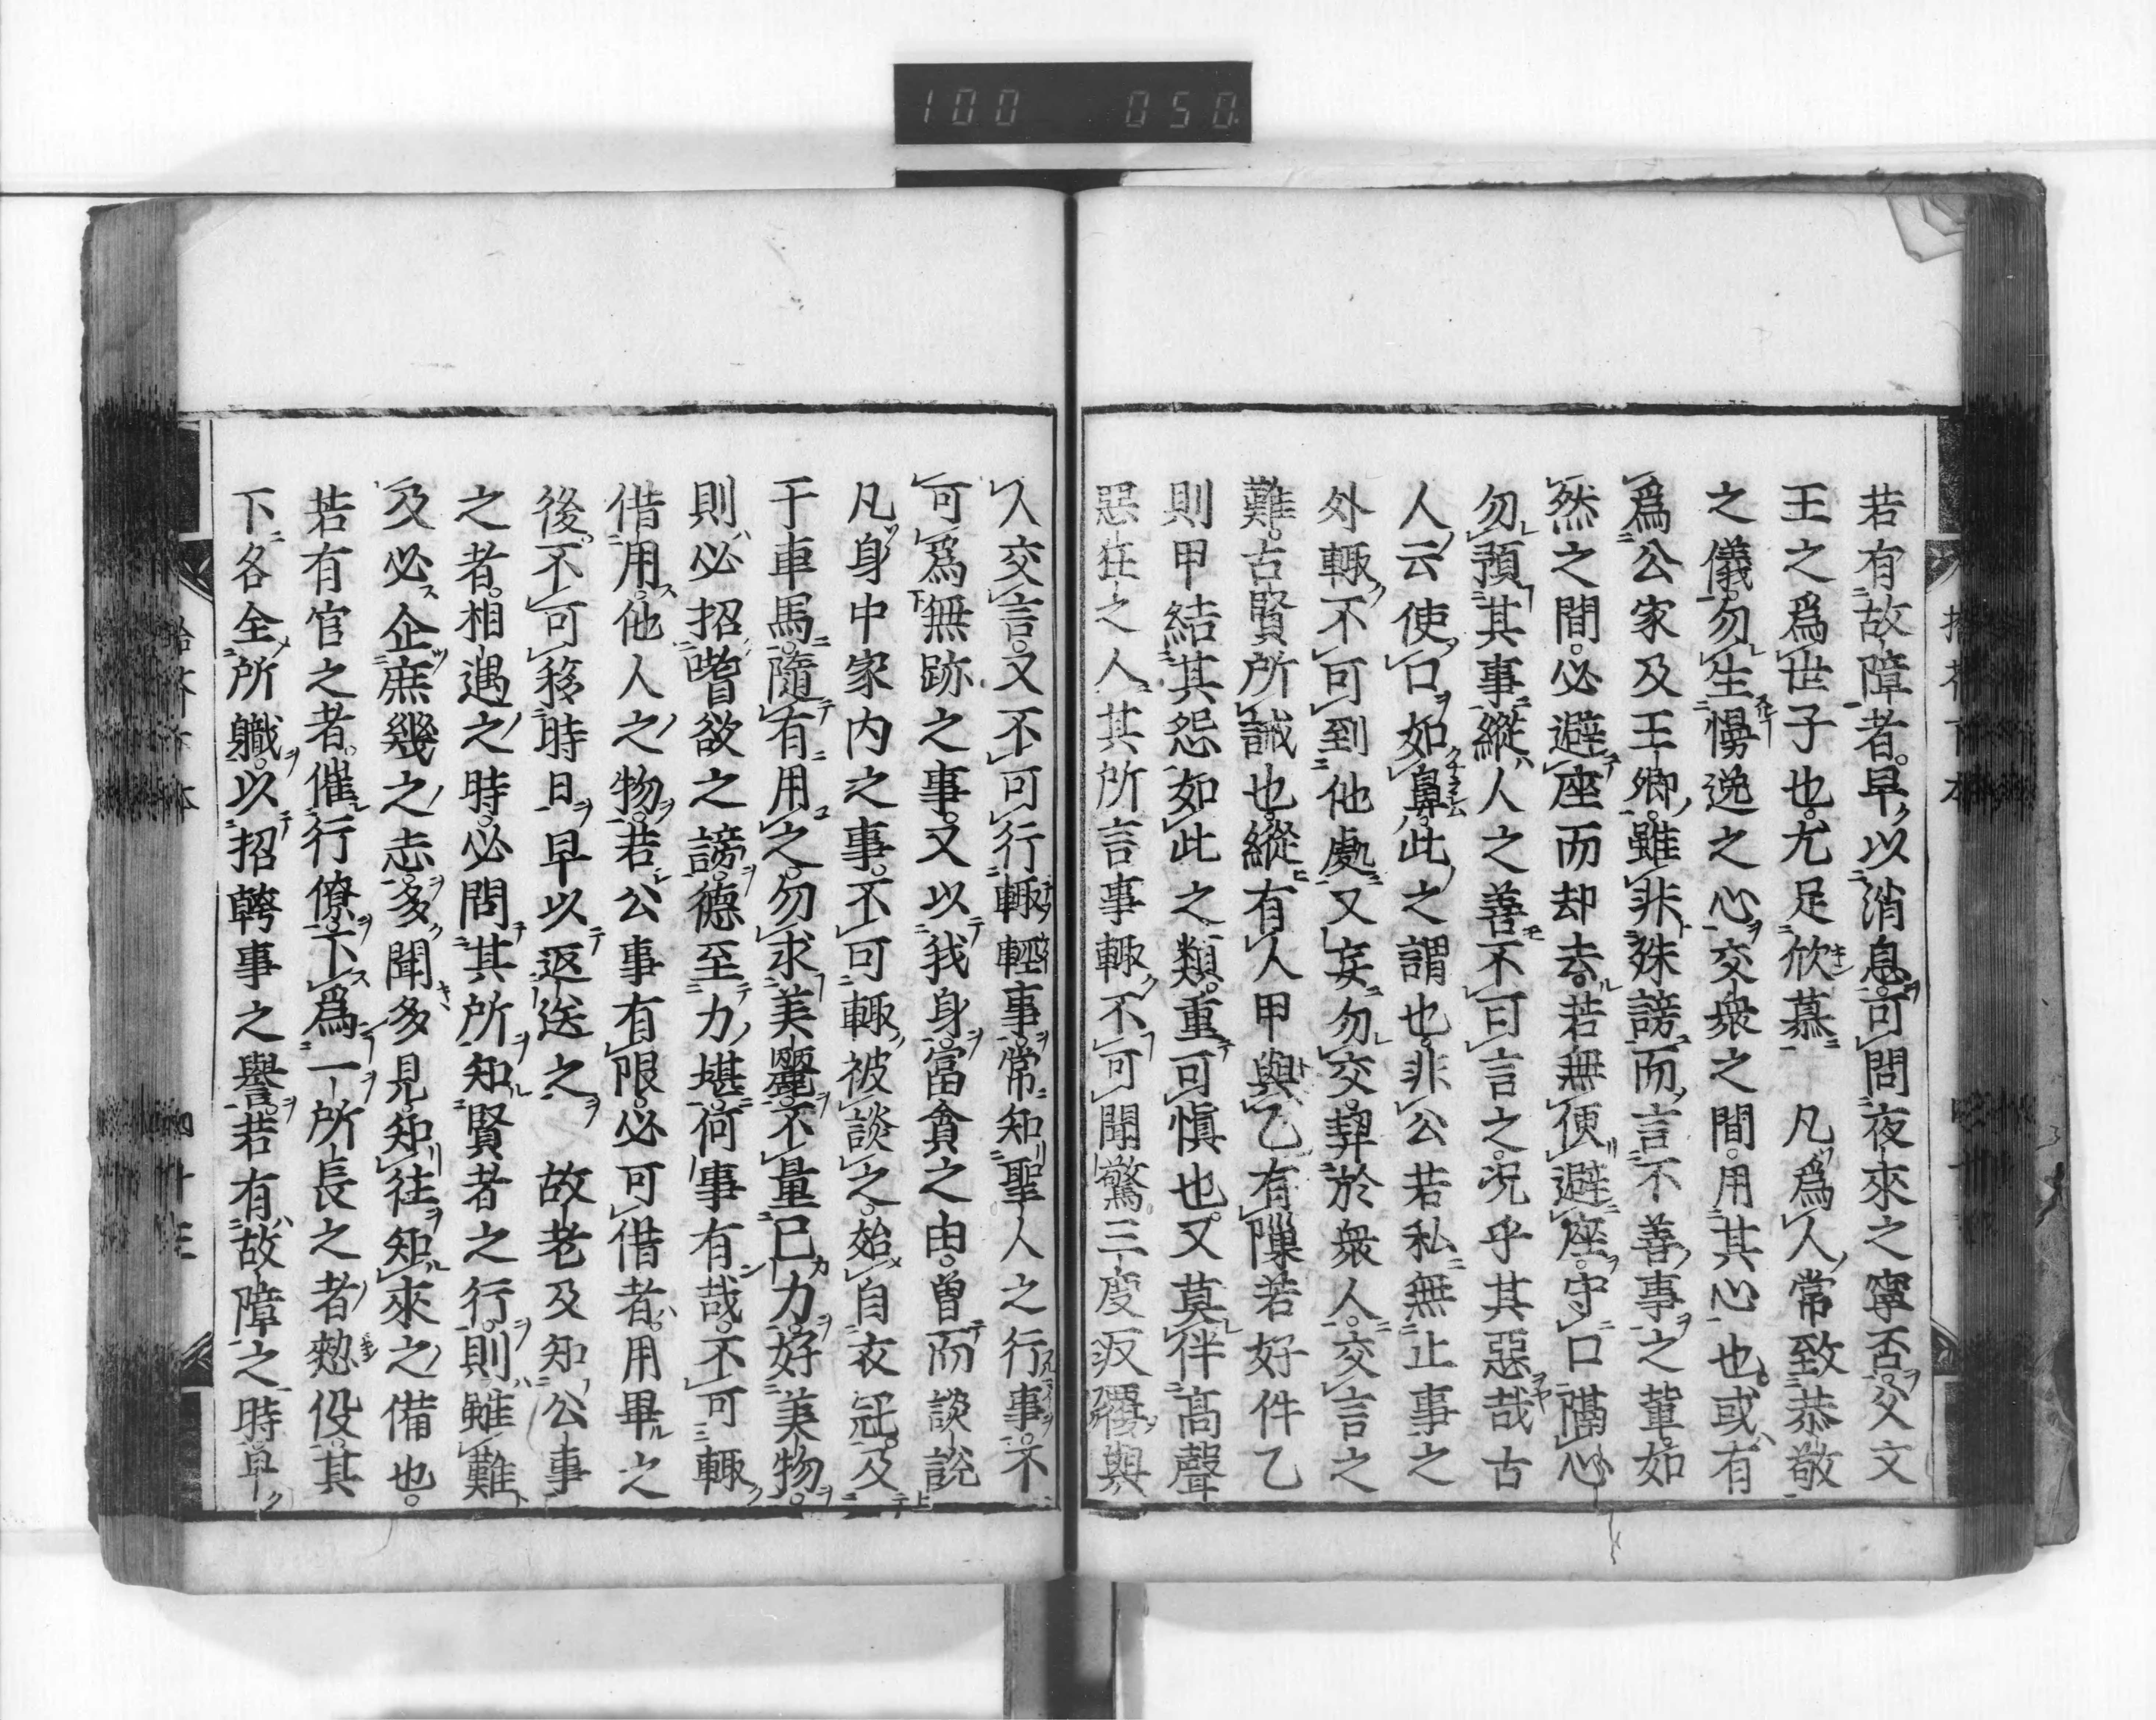 若有故障者。早以消息。可問夜來之寧否。父文
王之爲世子也。尤足欣慕　凡爲人常致恭敬
之儀。勿生慢逸之心。交衆之間。用其心也。或有
爲公家及王卿。雖非殊謗而言不善事之輩。如
然之間。必避座而却去。若無便避座。守口隔心
勿預其事。縱人之善不可言之。况乎其惡哉古
人云使口如鼻。此之謂也。非公若私無止事之
外輙不可到他處。又妄勿交契於衆人。交言之
難。古賢所誡也。縱有人甲與乙有隟若好件乙
則甲結其怨如此之類。重可愼也。又莫伴高聲
惡狂之人。其所言事輙不可聞驚三度反覆與
人交言。又不可行輙輕事。常知聖人之行事。不
可爲無跡之事。又以我身。富貪之由。曽而談說
凡身中家内之事。不可輙被談之。始自衣冠。及
于車馬。隨有用之。勿求美麗。不量已力。好美物。
則必招嗜欲之謗。德至力堪。何事有哉。不可輙
借用。他人之物。若公事有限。必可借者。用畢之
後。不可移時日。早以返送之　故老及知公事
之者。相遇之時。必問其所知賢者之行。則雖難
及必企庶幾之志。多聞多見。知往知來之備也。
若有官之者。催行僚下。爲一所長之者。懃役。其
下各全所職。以招聘事之譽。若有故障之時早
100 050